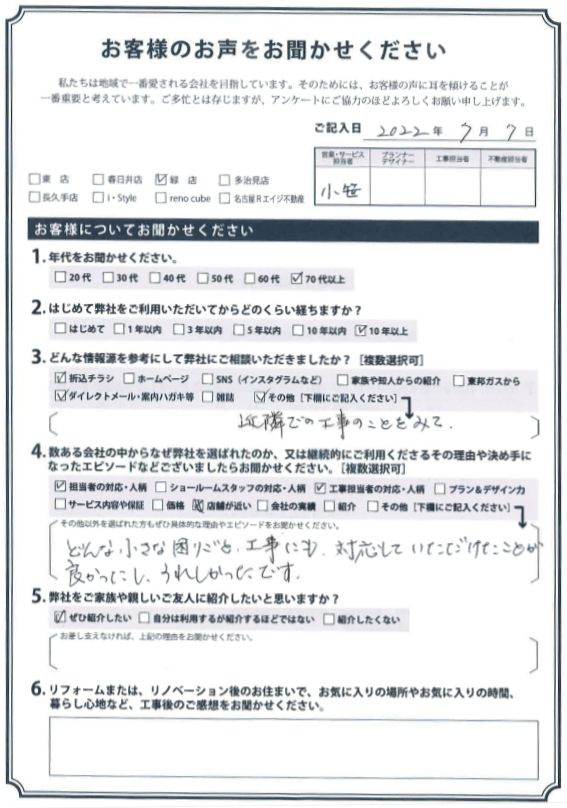 お客様のお声をお聞かせください
私たちは地域で一番愛される会社を目指しています。そのためには、お客様の声に耳を傾けることが
一番重要と考えています。ご多忙とは存じますが、アンケートにご協力のほどよろしくお願い申し上げます。
ご記入日 2022年 7月 7日
営業・サービス担当者 プランナーデザイナー 工事担当者 不動産担当者
小笹
□東 店 □春日井店 ☑緑 店 □多治見店
□長久手店 □i・Style □reno cube □名古屋Rエイジ不動産
お客様についてお聞かせください
1.年代をお聞かせください。
□20代 □30代 □40代 □50代 □60代 ☑70代以上
2.はじめて弊社をご利用いただいてからどのくらい経ちますか?
□はじめて □1年以内 □3年以内 □5年以内 □10年以内 ☑10年以上
3.どんな情報源を参考にして弊社にご相談いただきましたか?[複数選択可]
☑折込チラシ □ホームページ □SNS(インスタグラムなど) □家族や知人からの紹介 □東邦ガスから
☑ダイレクトメール・案内ハガキ等 □雑誌 ☑その他[下欄にご記入ください]
近隣での工事のことをみて.
4.数ある会社の中からなぜ弊社を選ばれたのか、又は継続的にご利用くださるその理由や決め手に
なったエピソードなどございましたらお聞かせください。[複数選択可]
☑担当者の対応・人柄 □ショールームスタッフの対応・人柄 ☑工事担当者の対応・人柄 □プラン&デザイン力
□サービス内容や保証 □価格 ☑店舗が近い □会社の実績 □紹介 □その他[下欄にご記入ください]
その他以外を選ばれた方もぜひ具体的な理由やエピソードをお聞かせください。
どんな小さな困りごと、工事にも、対応していただけたことが
良かったし、うれしかったです.
5.弊社をご家族や親しいご友人に紹介したいと思いますか?
☑ぜひ紹介したい □自分は利用するが紹介するほどではない □紹介したくない
お差し支えなければ、上記の理由をお聞かせください。
6.リフォームまたは、リノベーション後のお住まいで、お気に入りの場所やお気に入りの時間、
暮らし心地など、工事後のご感想をお聞かせください。